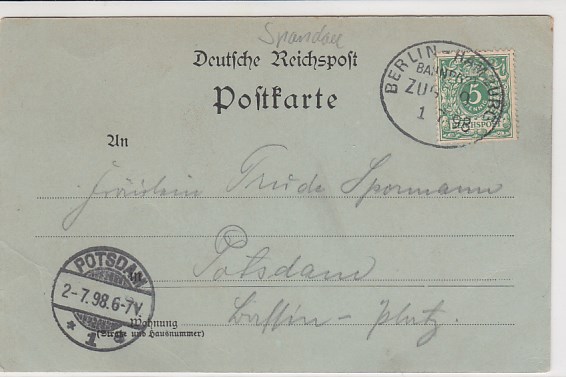 Spandau
Deutsche Reichspost
Postkarte
BERLIN-HAMBURG
BAHNPOST
ZUG
1 7 98
5
REICHSPOST
An
Fräulein Trude Spormann
in
Potsdam
POTSDAM
2-7.98.6-7V.
* 1
Wohnung
(Straße und Hausnummer)
Bassin-Platz.